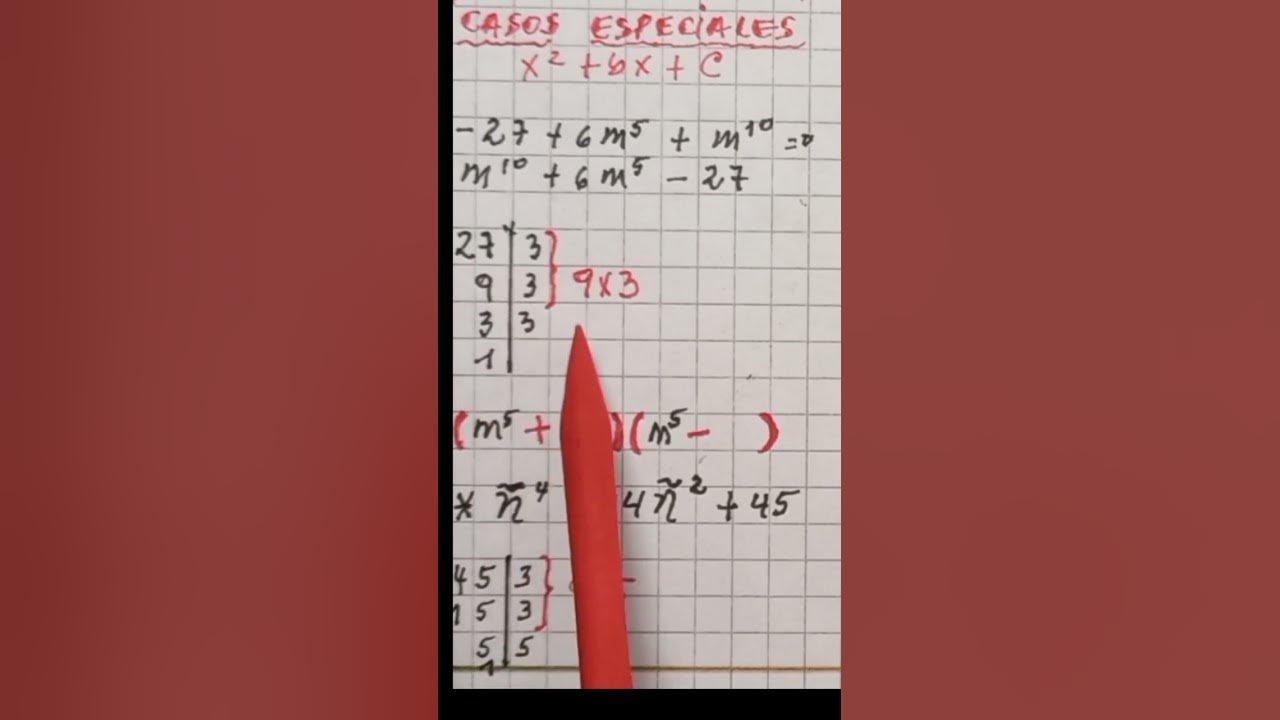 CASOS ESPECIALES
x² + bx + C
-27 + 6m⁵ + m¹⁰ =0
m¹⁰ + 6m⁵ - 27
27 | 3
9 | 3 } 9x3
3 | 3
1
(m⁵ + )(m⁵ - )
* ñ⁴ 4ñ² + 45
45 | 3
15 | 3 }
5 | 5
1